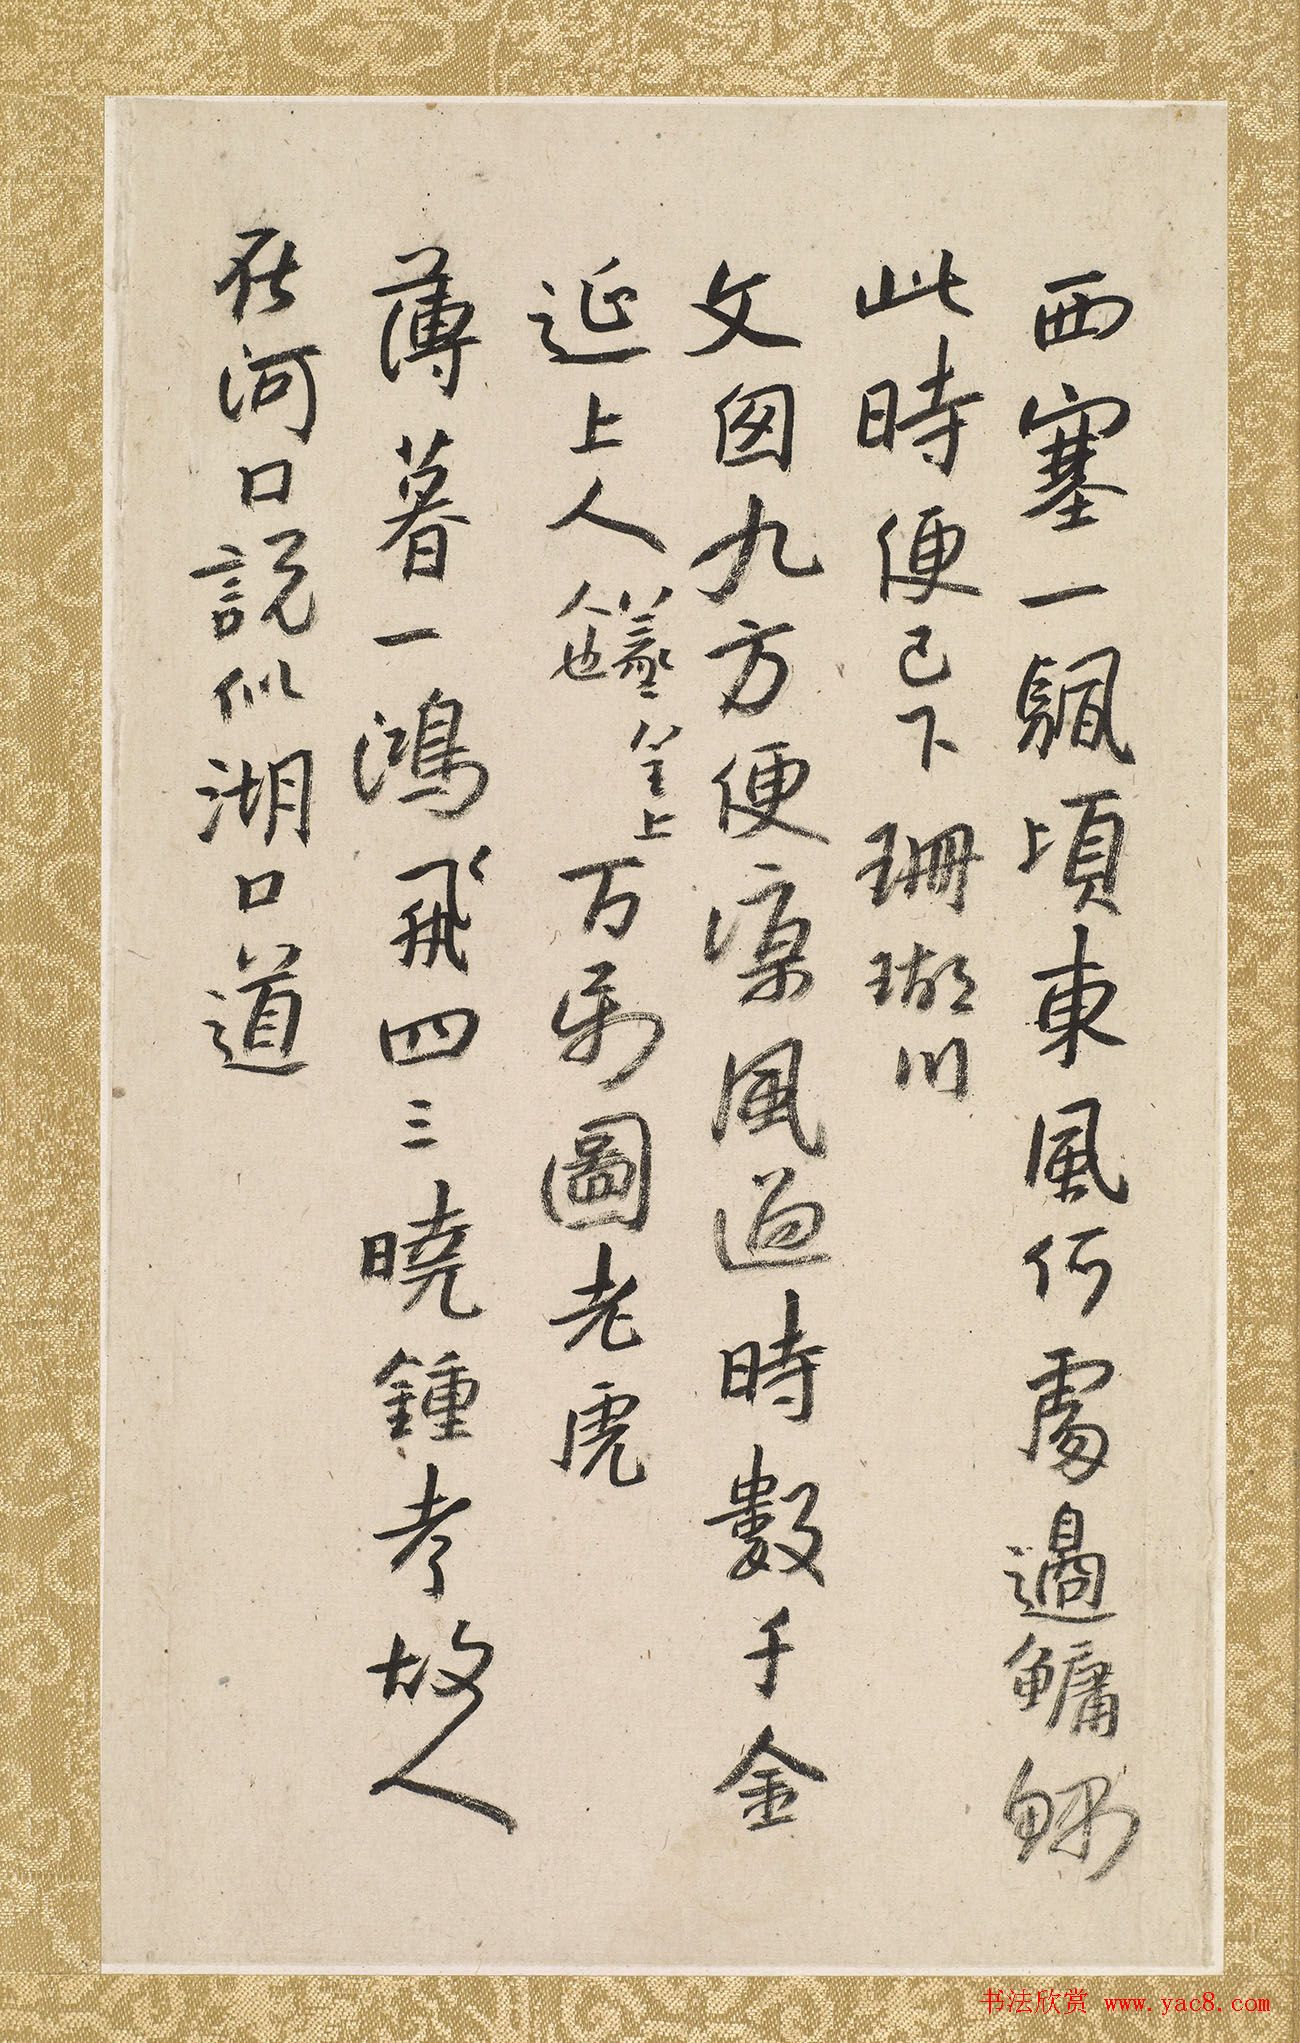 西塞一颿頃東風何處邊鱅
此時便已下珊瑚川
文囪九方便涼風過時數千金
延上人
人也
皇上
万 圖老虎
薄暮一鴻飛四三曉鍾孝故人
在河口說似湖口道
书法欣赏 www.yac8.com